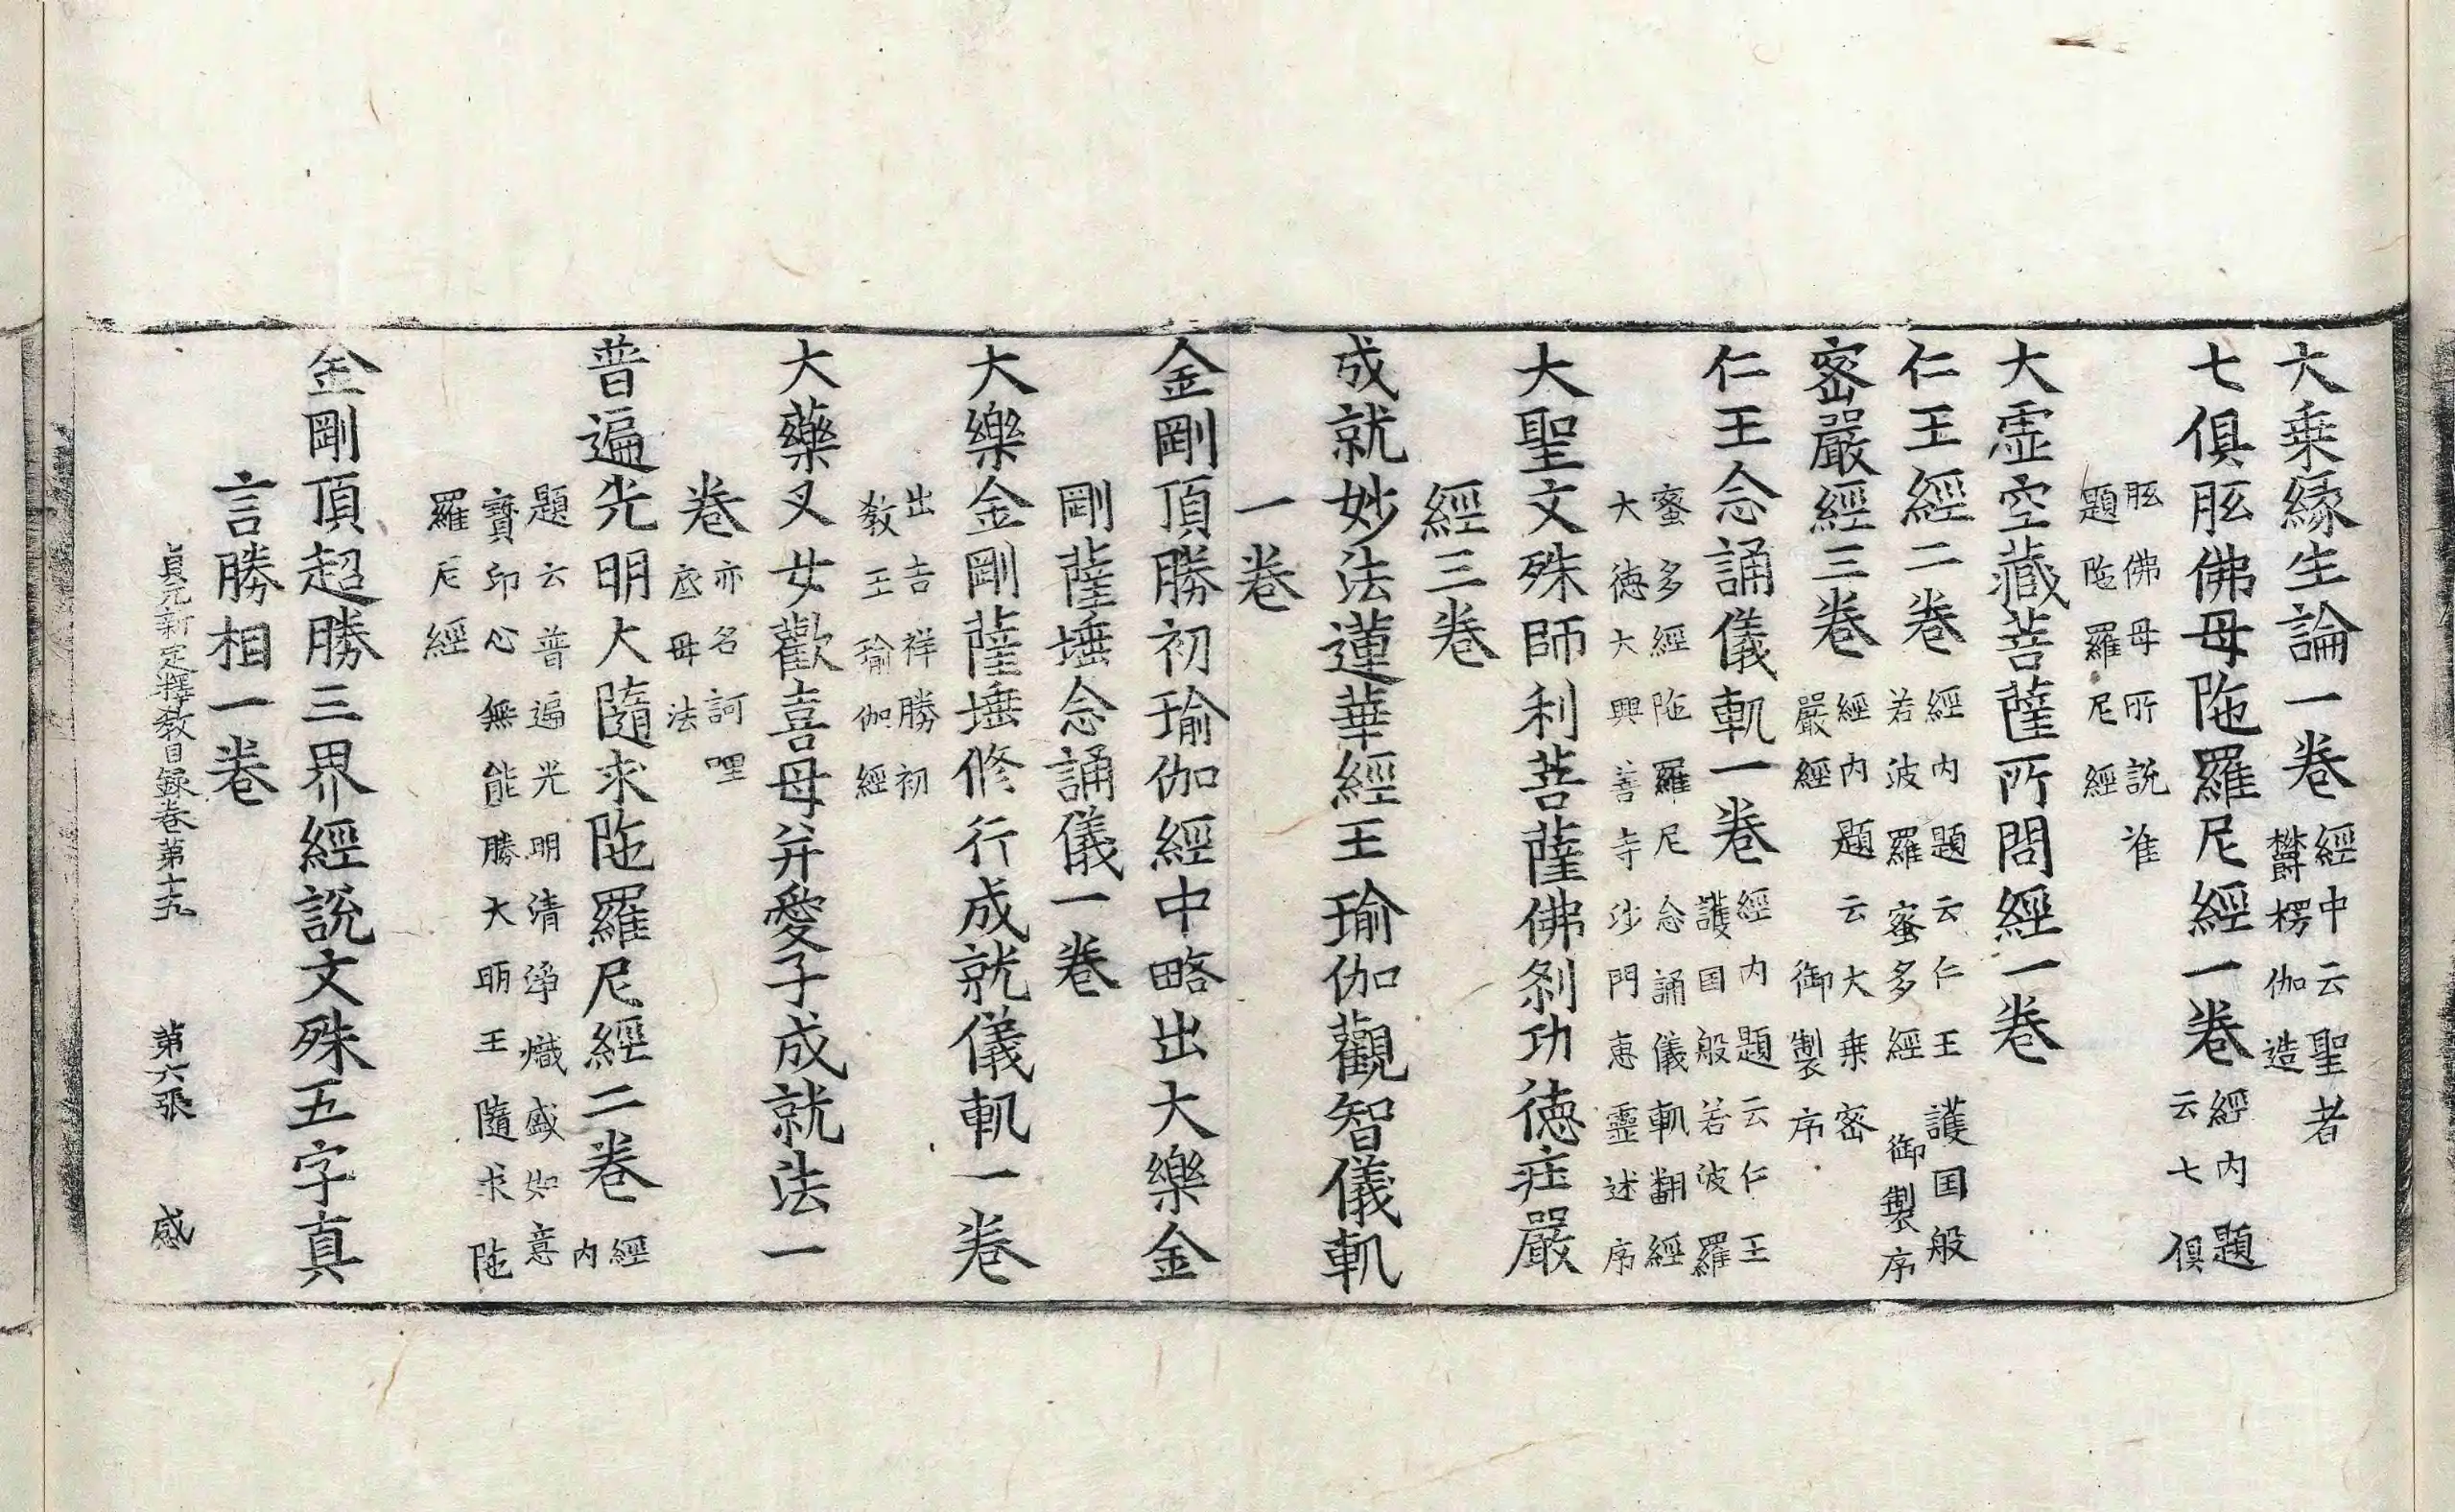 大乗緣生論一卷經中云聖者
欝楞伽造
七俱胝佛母陁羅尼經一卷經內題
云七俱
胝佛母所說准
題陁羅尼經
大虛空藏菩薩所問經一卷
仁王經二卷經內題云仁王護国般
若波羅蜜多經御製序
密嚴經三卷經內題云大乗密
嚴經御製序
仁王念誦儀軌一卷經內題云仁王
護国般若波羅
蜜多經陁羅尼念誦儀軌翻經
大德大興善寺沙門惠靈述序
大聖文殊師利菩薩佛剎功德庄嚴
經三卷
成就妙法蓮華經王瑜伽觀智儀軌
一卷
金剛頂勝初瑜伽經中略出大樂金
剛薩埵念誦儀一卷
大樂金剛薩埵修行成就儀軌一卷
出吉祥勝初
教王瑜伽經
大藥叉女歡喜母并愛子成就法一
卷亦名訶哩
底母法
普遍光明大隨求陁羅尼經二卷經
內
題云普遍光明清淨熾盛如意
寶印心無能勝大明王隨求陁
羅尼經
金剛頂超勝三界經說文殊五字真
言勝相一卷
貞元新定釋教目録卷第二十九 第六張 感